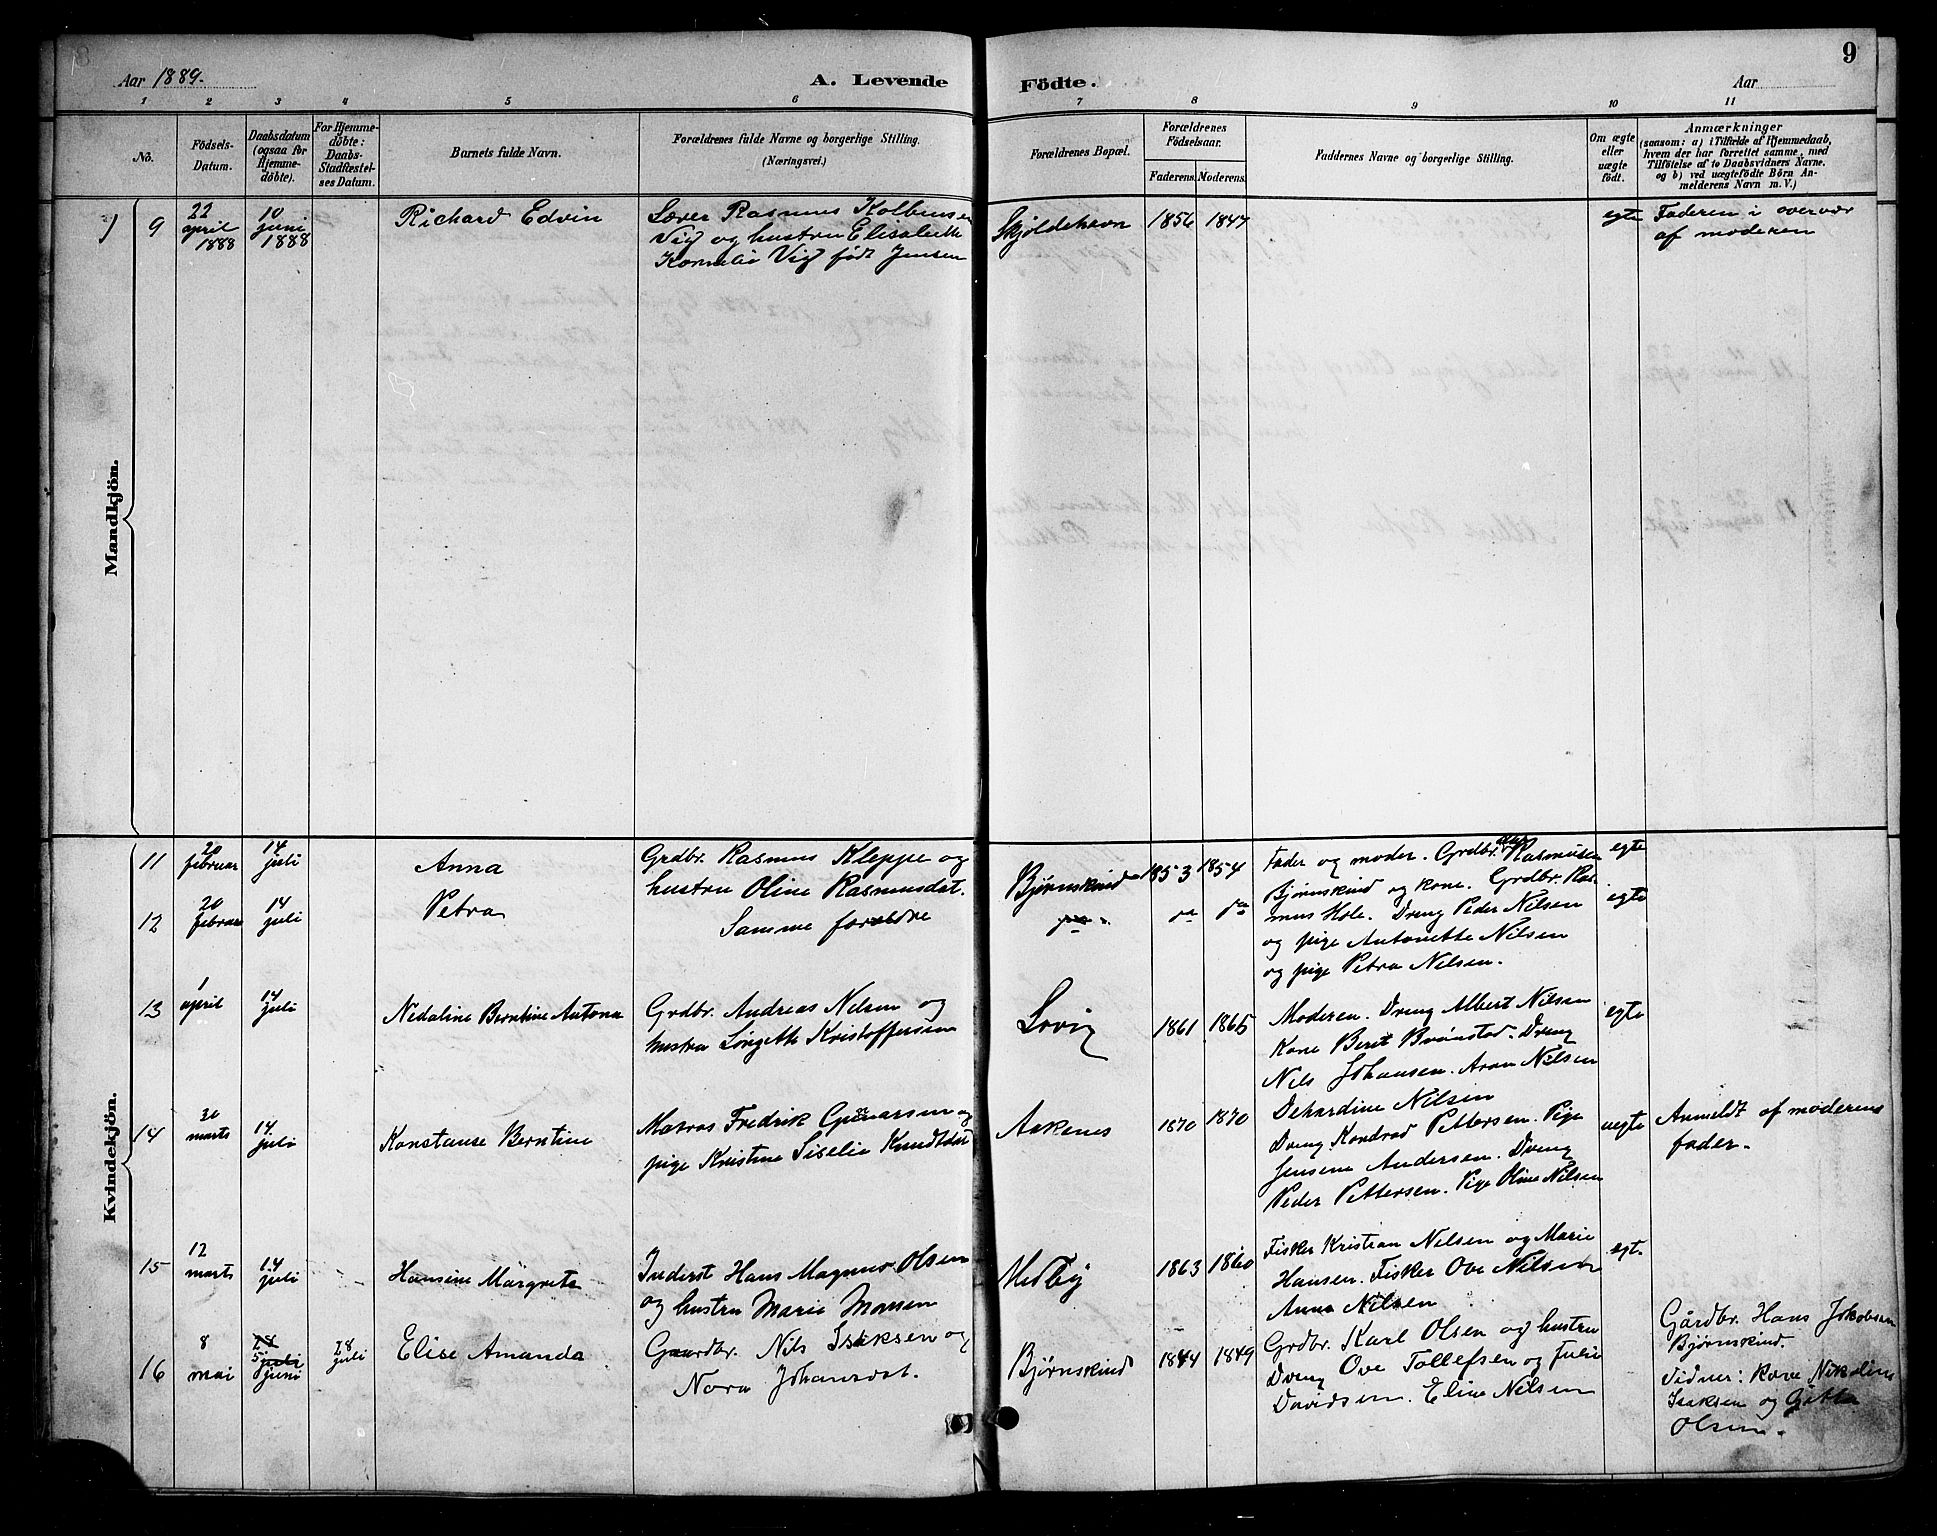 8
Aar 1889.
A. Levende
Födte.
Aar
9
1 2 3 4 5 6 7 8 9 10 11
No.
Födsels-
Datum.
Daabsdatum
(ogsaa for
Hjemme-
döbte).
For Hjemme-
döbte:
Daabs-
Stadfæstel-
ses Datum.
Barnets fulde Navn.
Forældrenes fulde Navne og borgerlige Stilling.
(Næringsvei.)
Forældrenes Bopæl.
Forældrenes
Födselsaar.
Faderens. Moderens.
Faddernes Navne og borgerlige Stilling.
Om ægte
eller
uægte
födt.
Anmærkninger
(saasom: a) i Tilfælde af Hjemmedaab,
hvem der har forrettet samme, med
Tilföielse af to Daabsvidners Navne.
og b) ved uægtefödte Börn An-
melderens Navn m. V.)
Mandkjön.
9
22
april
1888
10
juni
1888
Richard Edvin
Lærer Rasmus Kolbensen
Vig og hustru Elisabeth
Kornelie Vig født Jensen
Skjoldehavn
1856 1847
egte
Faderen i overvær
af moderen
Kvindekjön.
11
20
februar
14
juli
Anna
Grdbr. Rasmus Kleppe og
hustru Oline Rasmusdat.
Bjørnskind
1853 1854
Fader og moder. Grdbr. Rasmusen
Bjørnskind og kone. Grdbr. Ras
mus Hole. Dreng Peder Nilsen
og pige Antonette Nilsen
og pige Petra Nilsen.
egte
12
20
februar
14
juli
Petra
Samme forældre
do do
egte
13
1
april
14
juli
Nedaline Berntine Antona
Grdbr. Andreas Nilsen og
hustru Lorgette Kristoffersen
Lovig
1861 1865
Moderen. Dreng Albert Nilsen
Kone Berit Brønstad. Dreng
Nils Johansen. Aron Nilsen
Dehardine Nilsen
egte
14
30
marts
14
juli
Konstanse Berntine
Matros Fredrik Gunarsen og
pige Kristine Siselie Knudtdat
Aakenes
1870 1870
Dreng Kondrad Pettersen. Pige
Jensine Andersen. Dreng
Peder Pettersen. Pige Oline Nilsen
uegte
Anmeldt af moderens
fader.
15
12
marts
14
juli
Hansine Margrete
Inderst Hans Magnus Olsen
og hustru Marie Monsen
Medby
1863 1860
Fisker Kristian Nilsen og Marie
Hansen. Fisker Ove Nilsen
Anna Nilsen
egt.
16
8
mai
5
juni
28
juli
Elise Amanda
Gaardbr. Nils Isaksen og
Nora Johansdat.
Bjørnskind
1844 1849
Grdbr. Karl Olsen og hustru
Dreng Ove Tollefsen og Julie
Davidsen. Eline Nilsen
Gårdbr. Hans Jakobsen
Bjørnskind.
Vidner: kone Nikoline
Isaksen og
Olsen.